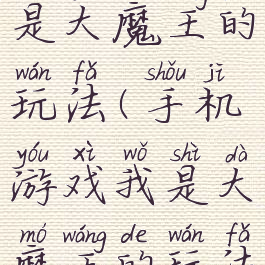 是大魔王的
wán fǎ shǒu jī
玩法(手机
yóu xì wǒ shì dà
游戏我是大
mó wáng de wán fǎ
魔王的玩法